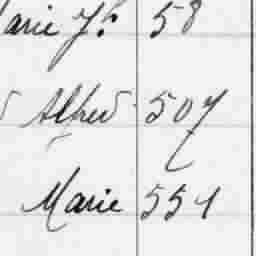 arie Jh 58
Alfred 507
Marie 551